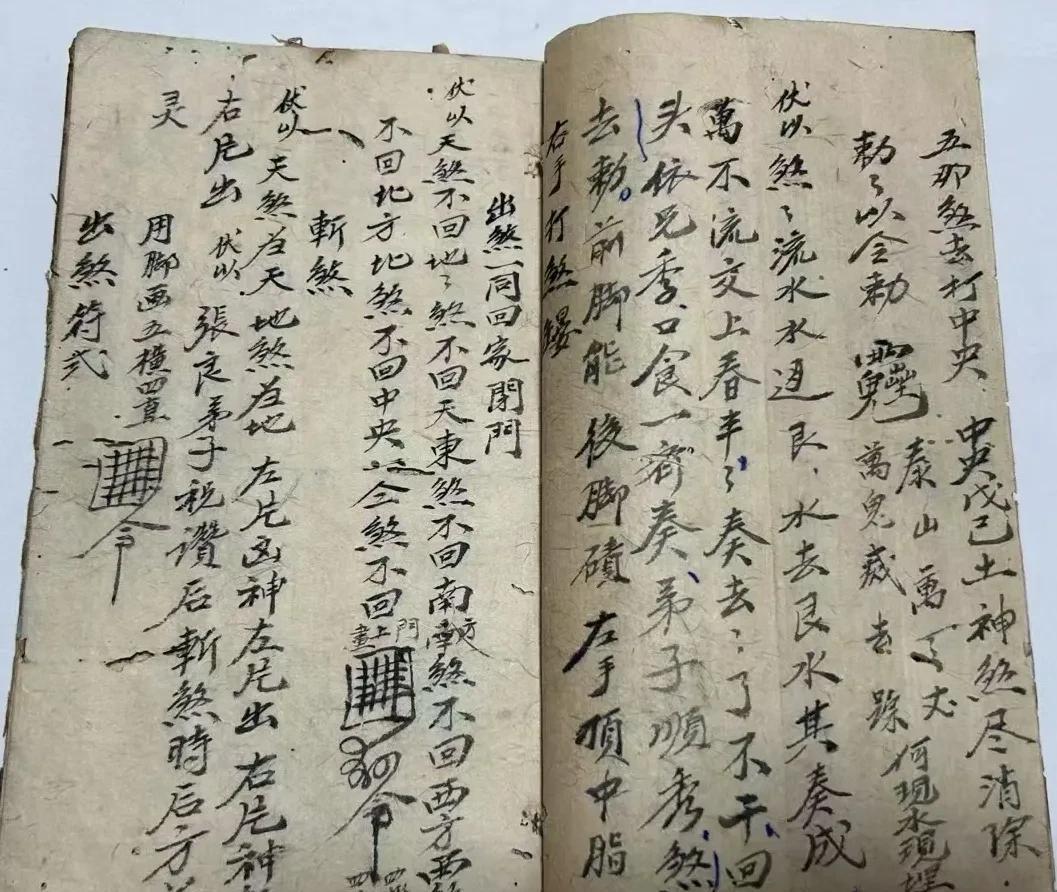 五那煞去打中央中央戊己土神煞尽消除
勅々以令勅
泰山萬々丈
萬鬼
去
何現永現
伏以煞々流水水
艮水去艮水其奏成
萬不流交上春丰々奏去々了不干回
头依兄季口食一齐奏弟子順秀煞
去勅前脚能後脚磧左手頂中脂
右手打煞
出煞一同回家閉門
伏以天煞不回地々煞不回天東煞不回南方南煞不回西方西
不回北方北煞不回中央
煞不回
門上畫
令
斬煞
伏以天煞在天地煞在地左片画神左片出右片神
右片出伏以張良弟子祝讚后斬煞時后方
灵
用脚画五横四直
出煞符式
令